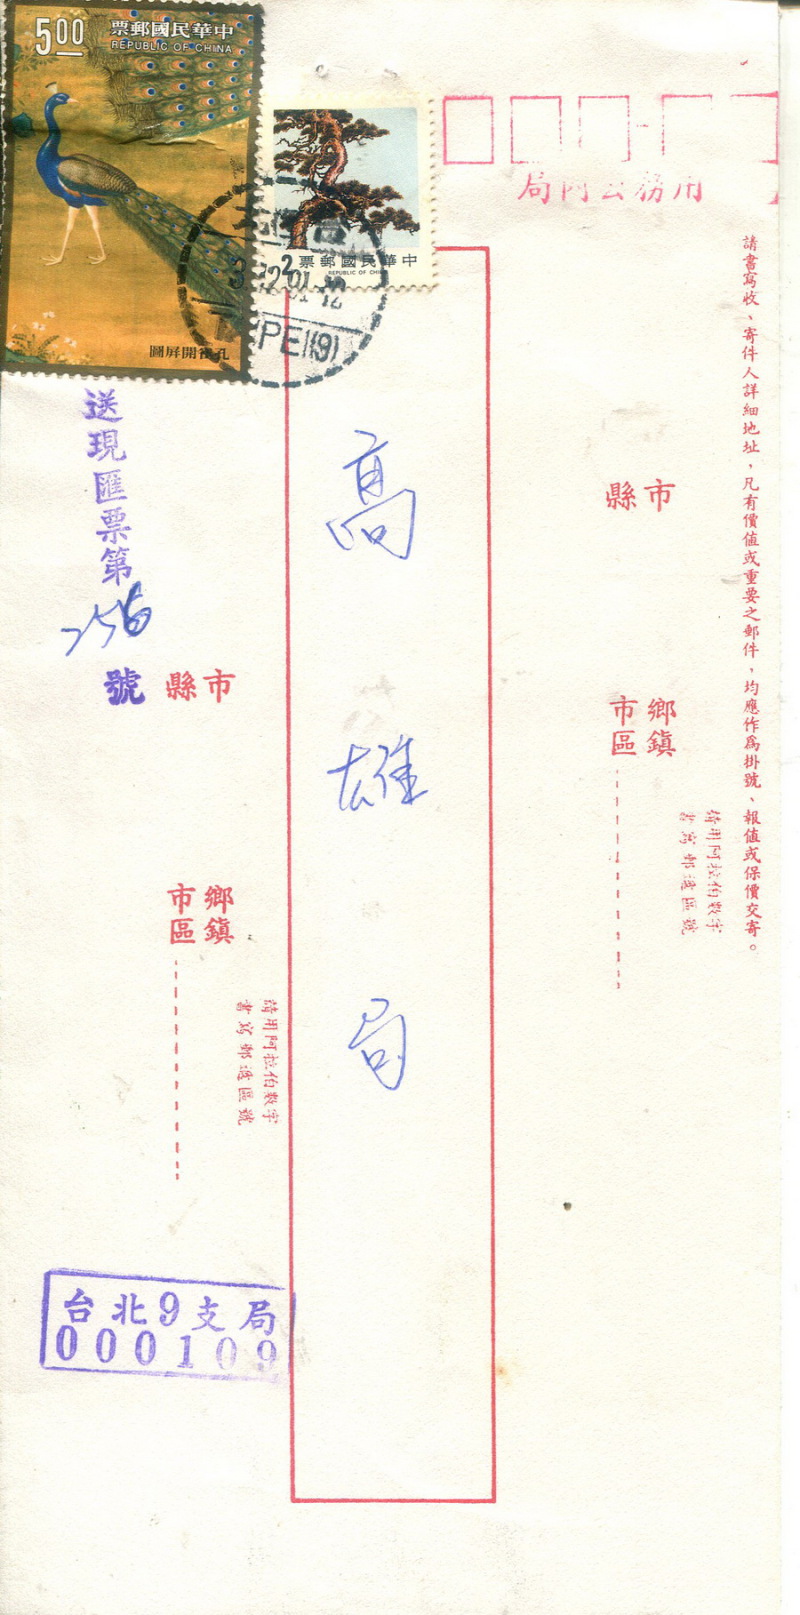 5.00
中華民國郵票
REPUBLIC OF CHINA
孔雀開屏圖
中華民國郵票
REPUBLIC OF CHINA
2
局內公務用
請書寫收、寄件人詳細地址,凡有價值或重要之郵件,均應作為掛號、報值或保價交寄。
市縣
鄉鎮
市區
請用阿拉伯數字
書寫郵遞區號
高雄局
送現匯票第
256
號
市縣
鄉鎮
市區
請用阿拉伯數字
書寫郵遞區號
台北9支局
000109